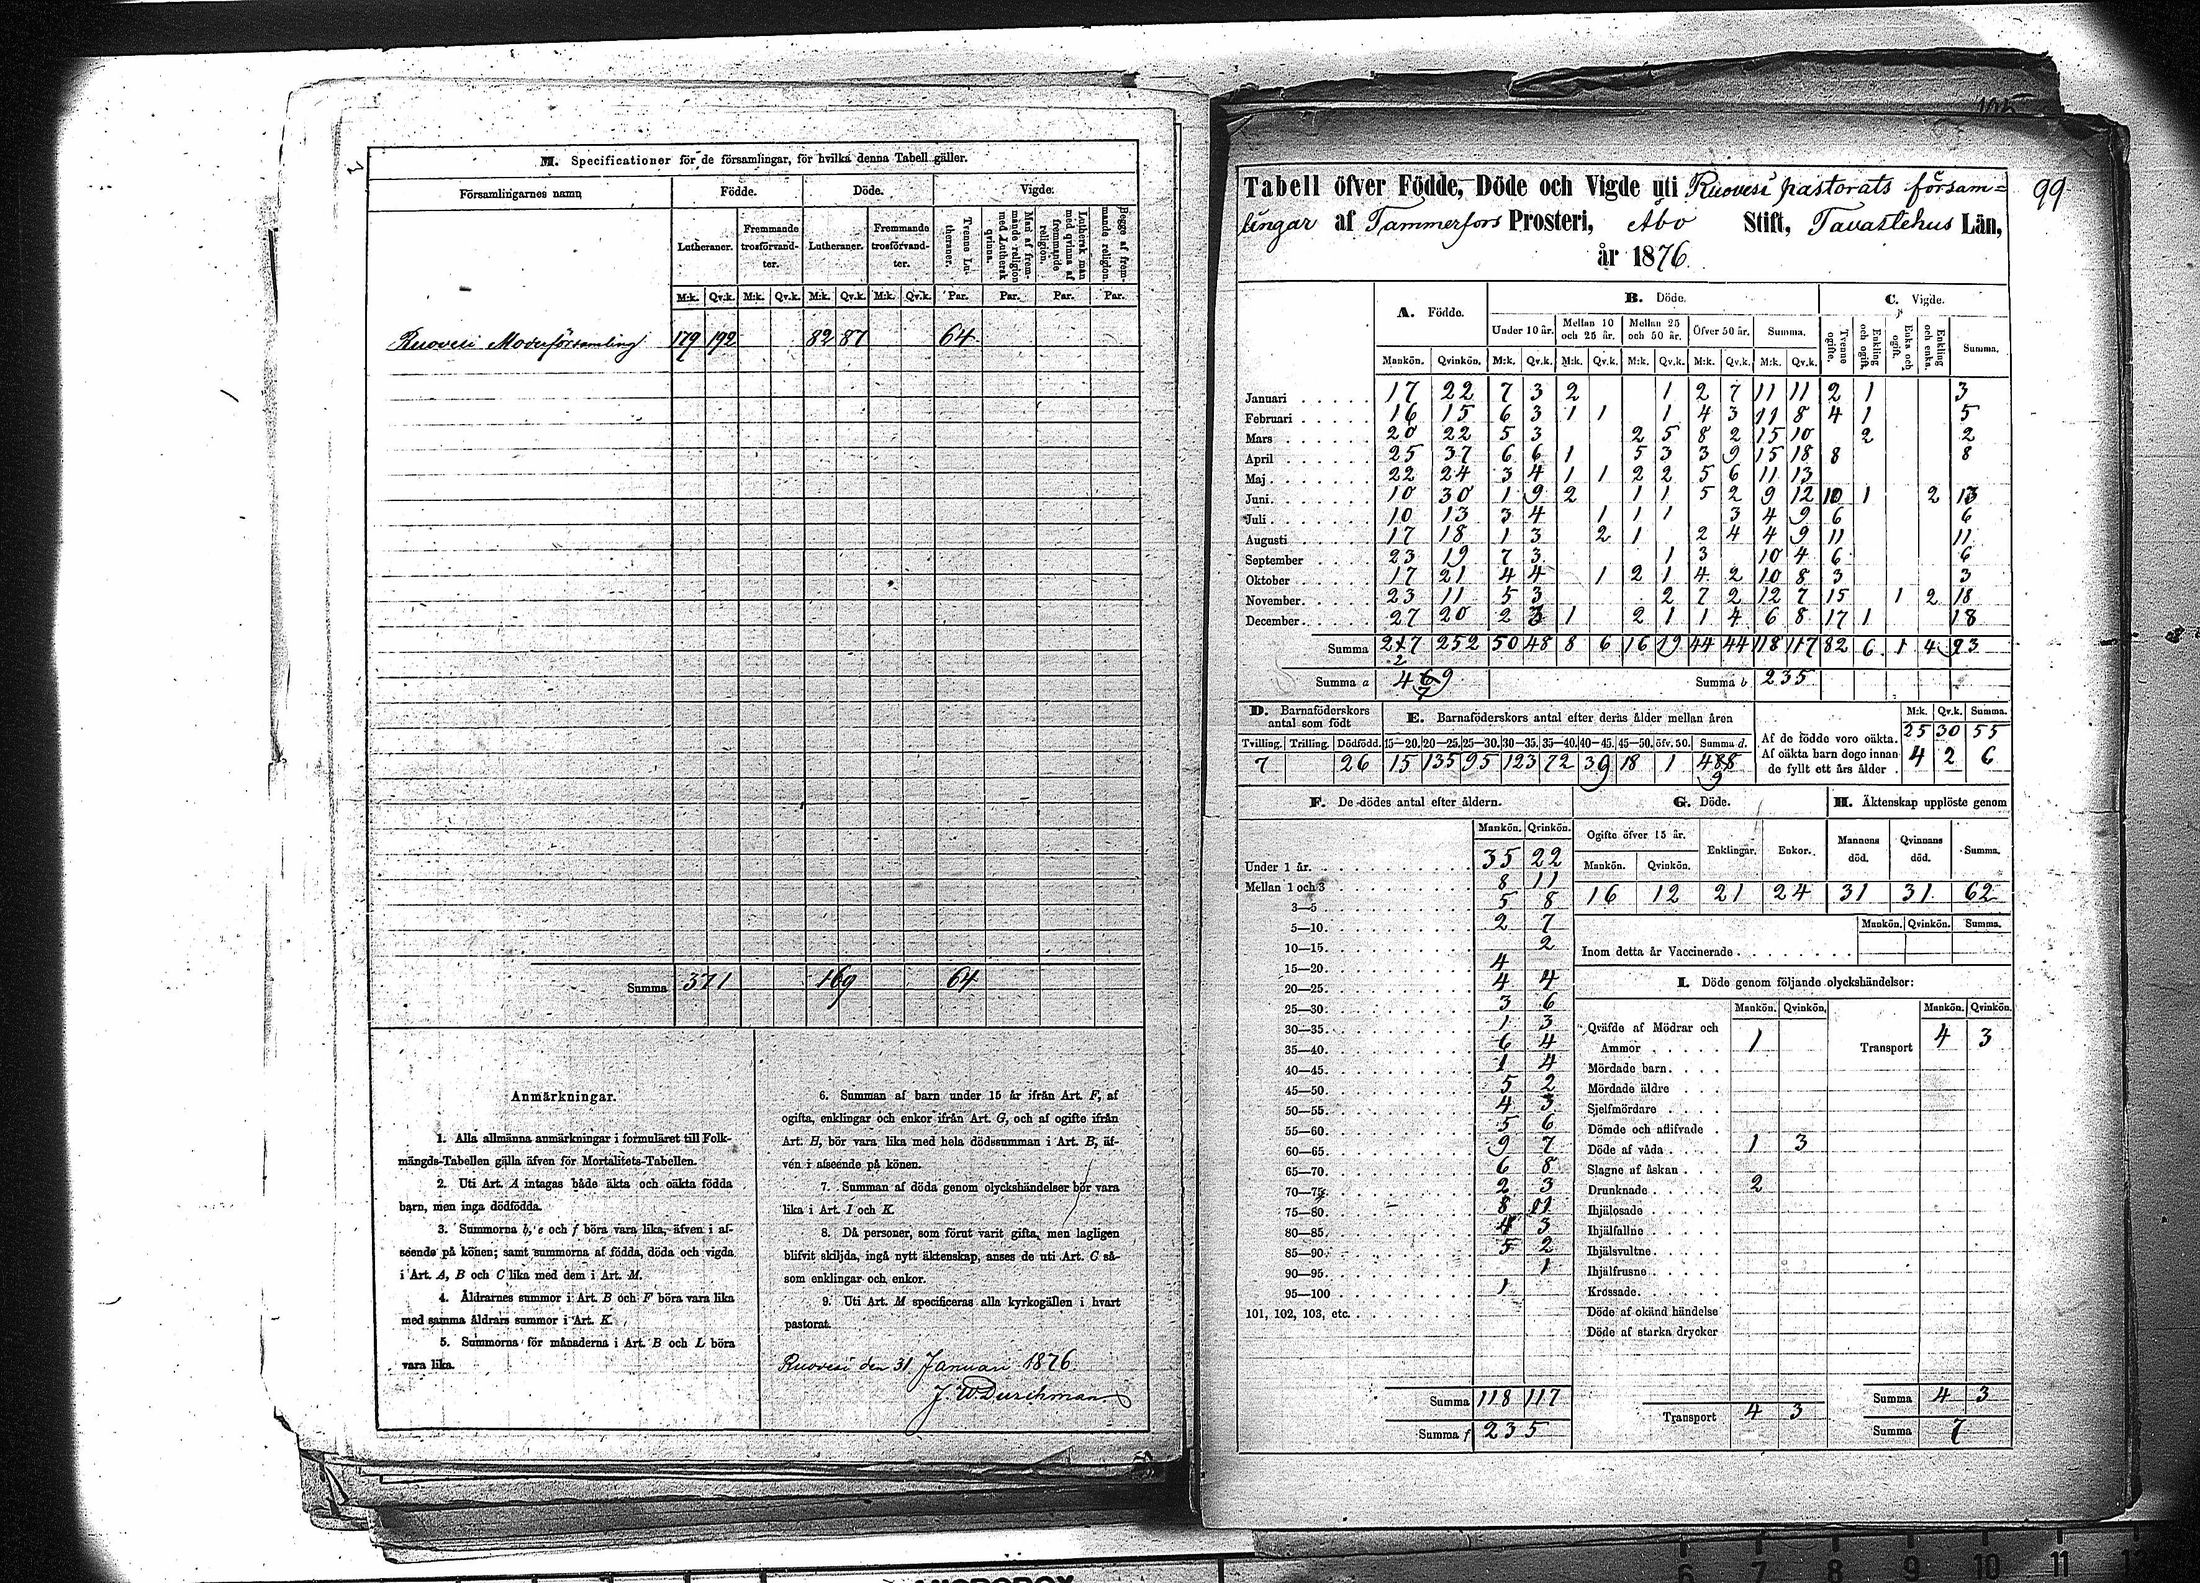 M. Specificationer för de församlingar, för hvilka denna Tabell gäller.
Församlingarnes namn Födde. Döde. Vigde.
Lutheraner. Fremmande trosförvandter. Lutheraner. Fremmande trosförvandter. Tvenne Lutheraner. Man af fremmande religion med Luthersk qvinna. Luthersk man med qvinna af fremmande religion. Begge af fremmande religion.
M:k. Qv.k. M:k. Qv.k. M:k. Qv.k. M:k. Qv.k. Par. Par. Par. Par.
Ruovesi Moderförsamling 179 192 82 87 64
Summa 371 169 64
Anmärkningar.
1. Alla allmänna anmärkningar i formuläret till Folk-
mängds-Tabellen gälla äfven för Mortalitets-Tabellen.
2. Uti Art. A intagas både äkta och oäkta födda
barn, men inga dödfödda.
3. Summorna b, e och f böra vara lika, äfven i af-
seende på könen; samt summorna af födda, döda och vigda
i Art. A, B och C lika med dem i Art. M.
4. Åldrarnes summor i Art. B och F böra vara lika
med samma åldrars summor i Art. K.
5. Summorna för månaderna i Art. B och L böra
vara lika.
6. Summan af barn under 15 år ifrån Art. F, af
ogifta, enklingar och enkor ifrån Art. G, och af ogifte ifrån
Art. H, bör vara lika med hela dödssumman i Art. B, äf-
vén i afseende på könen.
7. Summan af döda genom olyckshändelser bör vara
lika i Art. I och K.
8. Då personer, som förut varit gifta, men lagligen
blifvit skiljda, ingå nytt äktenskap, anses de uti Art. C så-
som enklingar och enkor.
9. Uti Art. M specificeras alla kyrkogällen i hvart
pastorat.
Ruovesi den 31 Januari 1876.
J. W. Durchman
99
Tabell öfver Födde, Döde och Vigde uti Ruovesi pastorats försam=
lingar af Tammerfors Prosteri, Åbo Stift, Tavastehus Län,
år 1876.
A. Födde. B. Döde. C. Vigde.
Under 10 år. Mellan 10 och 25 år. Mellan 25 och 50 år. Öfver 50 år. Summa. Tvenne ogifte. Enkling och ogift. Enka och ogift. Enkling och enka. Summa.
Mankön. Qvinkön. M:k. Qv.k. M:k. Qv.k. M:k. Qv.k. M:k. Qv.k. M:k. Qv.k.
Januari 17 22 7 3 2 1 2 7 11 11 2 1 3
Februari 16 15 6 3 1 1 1 4 3 11 8 4 1 5
Mars 20 22 5 3 2 5 8 2 15 10 2 2
April 25 37 6 6 1 5 3 3 9 15 18 8 8
Maj 22 24 3 4 1 1 2 2 5 6 11 13
Juni 10 30 1 9 2 1 1 5 2 9 12 10 1 2 13
Juli 10 13 3 4 1 1 1 3 4 9 6 6
Augusti 17 18 1 3 2 1 2 4 4 9 11 11
September 23 19 7 3 1 3 10 4 6 6
Oktober 17 21 4 4 1 2 1 4 2 10 8 3 3
November 23 11 5 3 2 7 2 12 7 15 1 2 18
December 27 20 2 3 1 2 1 1 4 6 8 17 1 18
Summa 217 252 50 48 8 6 16 19 44 44 118 117 82 6 1 4 93
2
Summa a 469 Summa b 235
7
D. Barnaföderskors antal som födt E. Barnaföderskors antal efter deras ålder mellan åren M:k. Qv.k. Summa.
Tvilling. Trilling. Dödfödd. 15—20. 20—25. 25—30. 30—35. 35—40. 40—45. 45—50. öfv. 50. Summa d.
Af de födde voro oäkta. 25 30 55
7 26 15 135 95 123 72 39 18 1 488
9
Af oäkta barn dogo innan de fyllt ett års ålder 4 2 6
F. De dödes antal efter åldern. G. Döde. H. Äktenskap upplöste genom
Mankön. Qvinkön. Ogifte öfver 15 år. Enklingar. Enkor. Mannens död. Qvinnans död. Summa.
Mankön. Qvinkön.
16 12 21 24 31 31 62
Under 1 år. 35 22
Mellan 1 och 3 8 11
3—5 5 8
5—10 2 7
10—15 2
15—20 4
20—25 4 4
25—30 3 6
30—35 1 3
35—40 6 4
40—45 1 4
45—50 5 2
50—55 4 3
55—60 5 6
60—65 9 7
65—70 6 8
70—75 2 3
75—80 8 11
80—85 4 3
85—90 5 2
90—95 1
95—100 1
101, 102, 103, etc.
Summa 118 117
Summa f 235
Mankön. Qvinkön. Summa.
Inom detta år Vaccinerade
I. Döde genom följande olyckshändelser:
Mankön. Qvinkön. Mankön. Qvinkön.
Qväfde af Mödrar och Ammor 1 Transport 4 3
Mördade barn
Mördade äldre
Sjelfmördare
Dömde och aflifvade
Döde af våda 1 3
Slagne af åskan
Drunknade 2
Ihjälosade
Ihjälfallne
Ihjälsvultne
Ihjälfrusne
Krossade
Döde af okänd händelse
Döde af starka drycker
Transport 4 3 Summa 4 3
Summa 7
6 7 8 9 10 11